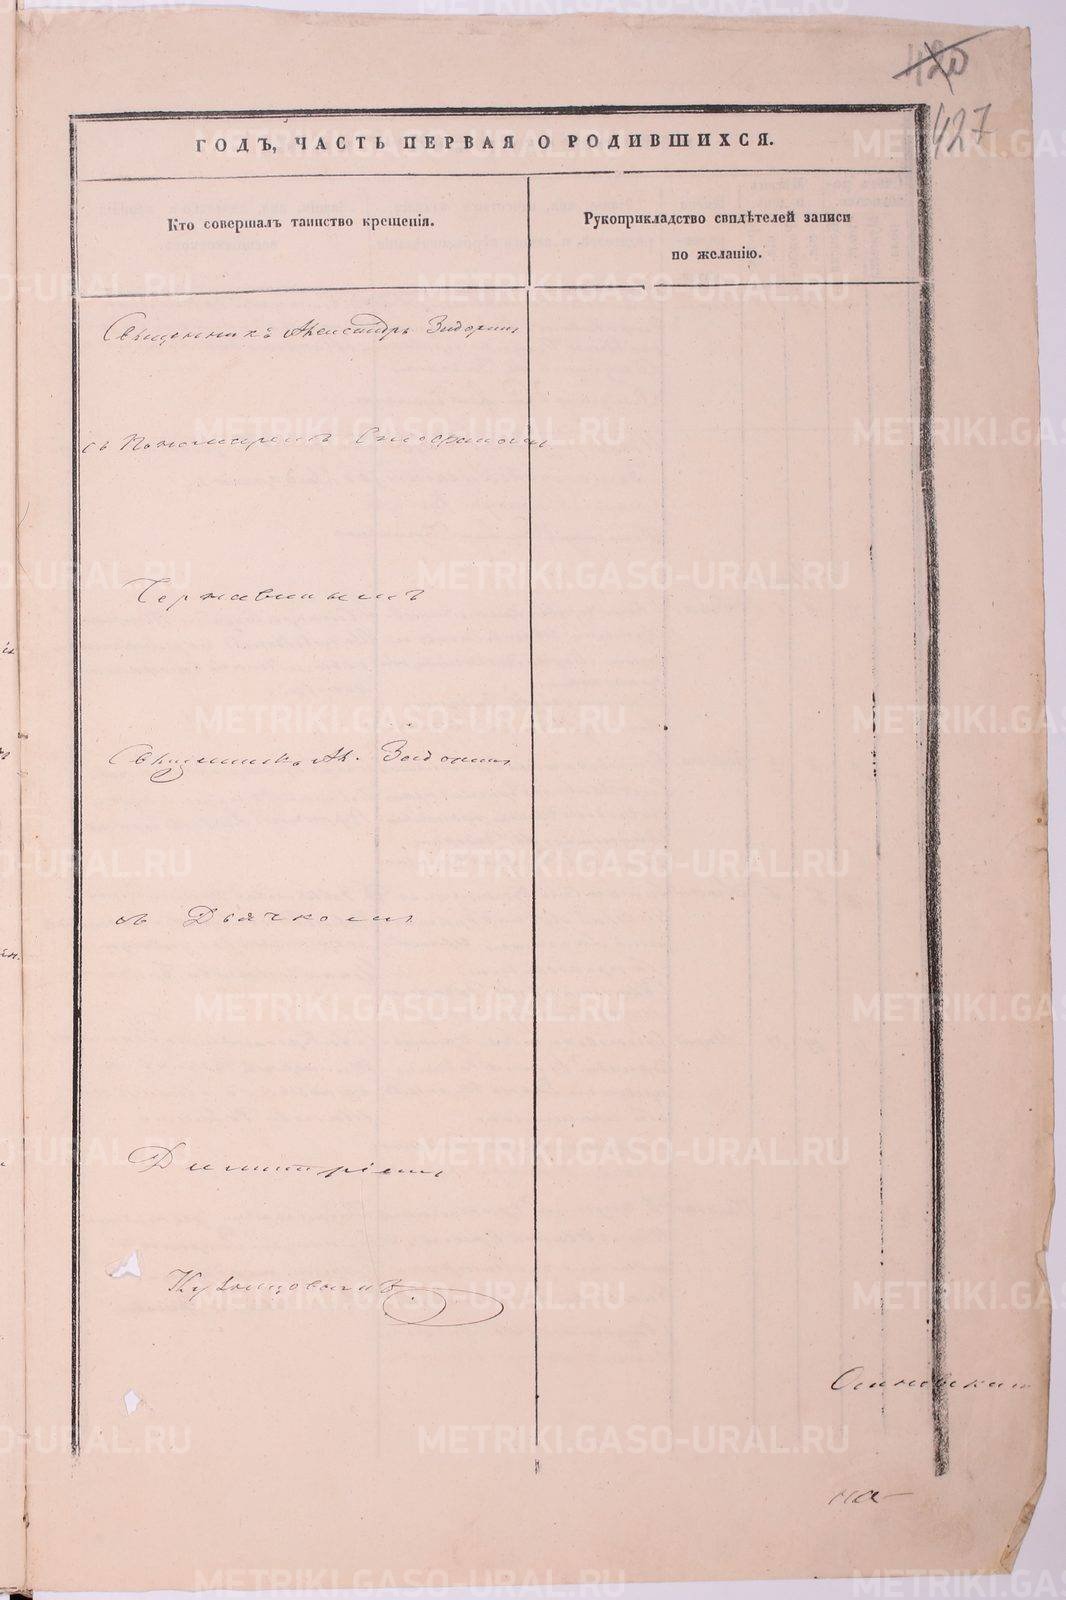 420
427
ГОДЪ, ЧАСТЬ ПЕРВАЯ О РОДИВШИХСЯ.
Кто совершалъ таинство крещенія.
Рукоприкладство свидѣтелей записи
по желанію.
Священникъ Александръ Задоринъ
съ Пономаремъ
Державинымъ
Священникъ Ал. Задоринъ
съ Дьячкомъ
Димитріемъ
Кузнецовымъ
на
METRIKI.GASO-URAL.RU